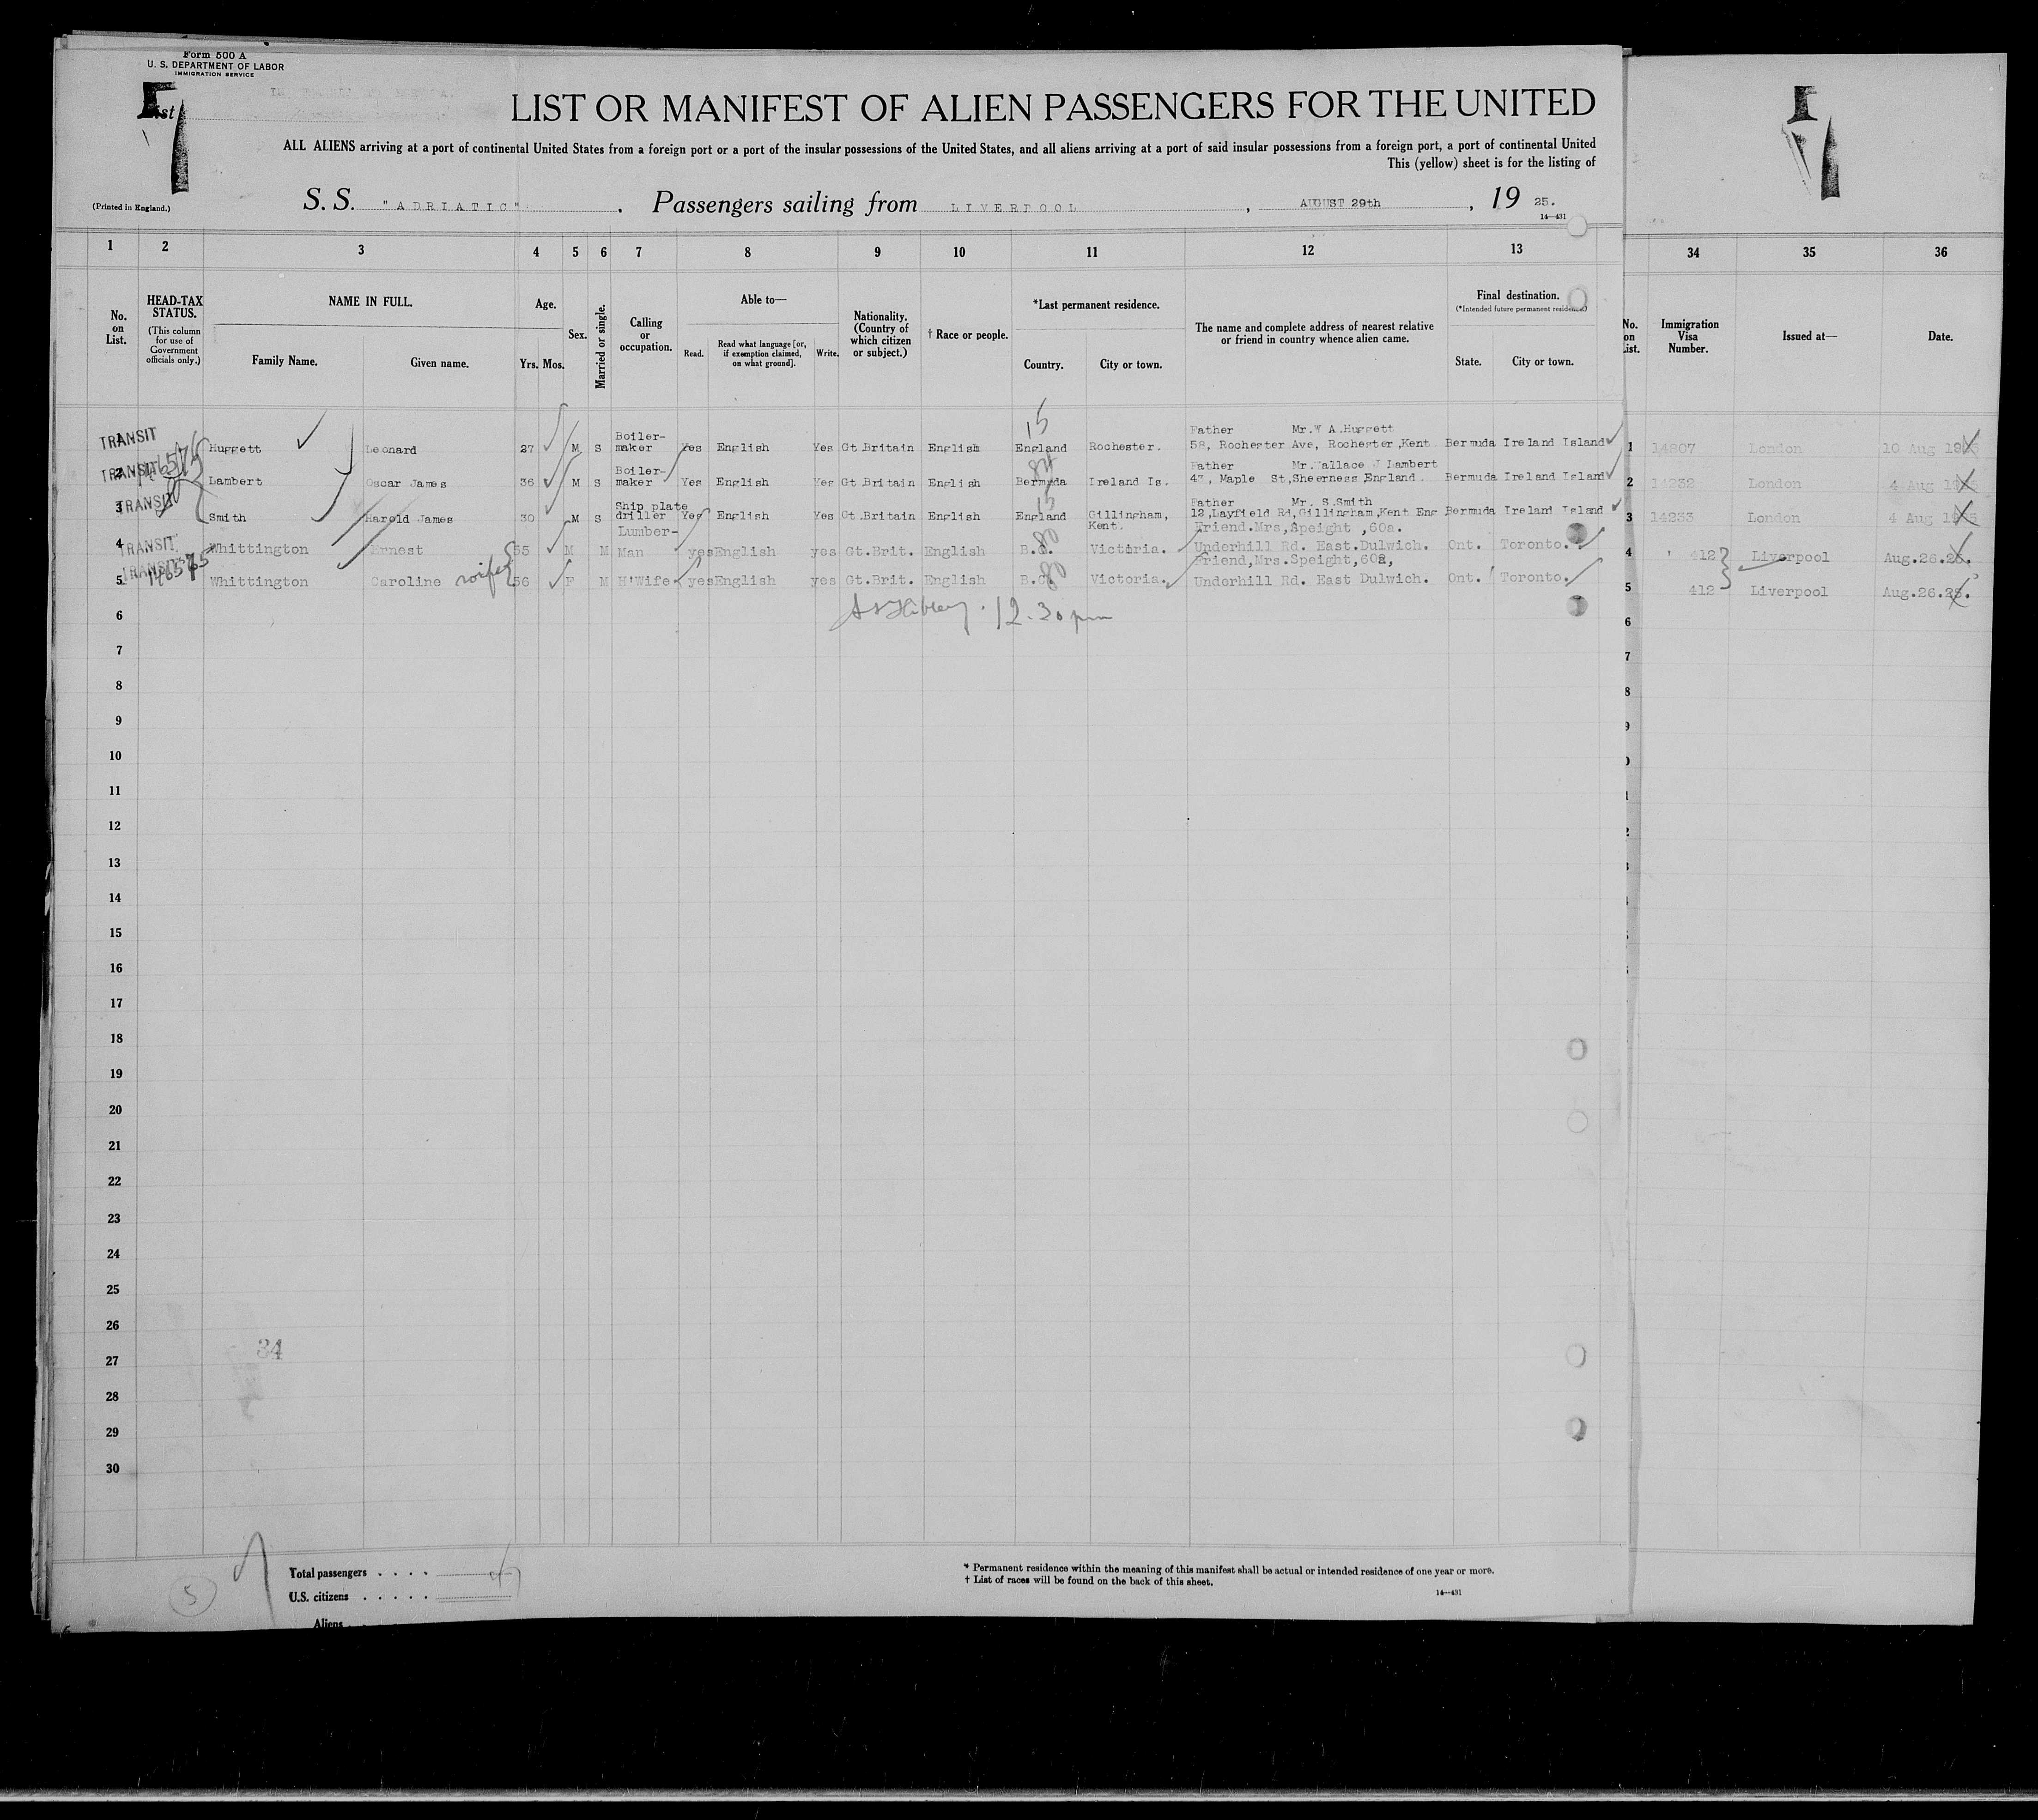 Form 500 A
U. S. DEPARTMENT OF LABOR
IMMIGRATION SERVICE
List
LIST OR MANIFEST OF ALIEN PASSENGERS FOR THE UNITED
ALL ALIENS arriving at a port of continental United States from a foreign port or a port of the insular possessions of the United States, and all aliens arriving at a port of said insular possessions from a foreign port, a port of continental United
This (yellow) sheet is for the listing of
(Printed in England.)
S. S. "ADRIATIC" . Passengers sailing from LIVERPOOL , AUGUST 29th , 19 25.
14-431
1 2 3 4 5 6 7 8 9 10 11 12 13 34 35 36
No. on List.
HEAD-TAX STATUS.
(This column for use of Government officials only.)
NAME IN FULL.
Family Name. Given name.
Age.
Yrs. Mos.
Sex.
Married or single.
Calling or occupation.
Able to—
Read. Read what language [or, if exemption claimed, on what ground]. Write.
Nationality. (Country of which citizen or subject.)
† Race or people.
*Last permanent residence.
Country. City or town.
The name and complete address of nearest relative or friend in country whence alien came.
Final destination.
(*Intended future permanent residence)
State. City or town.
No. on List.
Immigration Visa Number.
Issued at—
Date.
15
TRANSIT
Boiler-
Father Mr.W A.Huggett
1 Huggett Leonard 27 M S maker Yes English Yes Gt.Britain English England Rochester. 58, Rochester Ave, Rochester,Kent Bermuda Ireland Island 1 14807 London 10 Aug 1925
TRANSIT
84
Boiler-
Father Mr.Wallace J Lambert
2 Lambert Oscar James 36 M S maker Yes English Yes Gt.Britain English Bermuda Ireland Is. 47, Maple St,Sheerness England. Bermuda Ireland Island 2 14232 London 4 Aug 1925
TRANSIT
15
Ship plate
Father Mr. S.Smith
3 Smith Harold James 30 M S driller Yes English Yes Gt.Britain English England Gillingham, Kent. 12,Layfield Rd,Gillingham,Kent Eng Bermuda Ireland Island 3 14233 London 4 Aug 1925
TRANSIT
80
Lumber-
Friend.Mrs,Speight ,60a.
4 Whittington Ernest 55 M M Man yes English yes Gt.Brit. English B.C. Victoria. Underhill Rd. East.Dulwich. Ont. Toronto. 4 412 Liverpool Aug.26.25.
TRANSIT
146575
80
Friend,Mrs.Speight,60a,
5 Whittington Caroline wife 56 F M H'Wife yes English yes Gt.Brit. English B.C. Victoria. Underhill Rd. East Dulwich. Ont. Toronto. 5 412 Liverpool Aug.26.25.
12.30 pm
6 6
7 7
8 8
9 9
10
11
12
13
14
15
16
17
18
19
20
21
22
23
24
25
26
34
27
28
29
30
5
Total passengers . . . .
U.S. citizens . . . . .
Aliens
* Permanent residence within the meaning of this manifest shall be actual or intended residence of one year or more.
† List of races will be found on the back of this sheet.
14-431